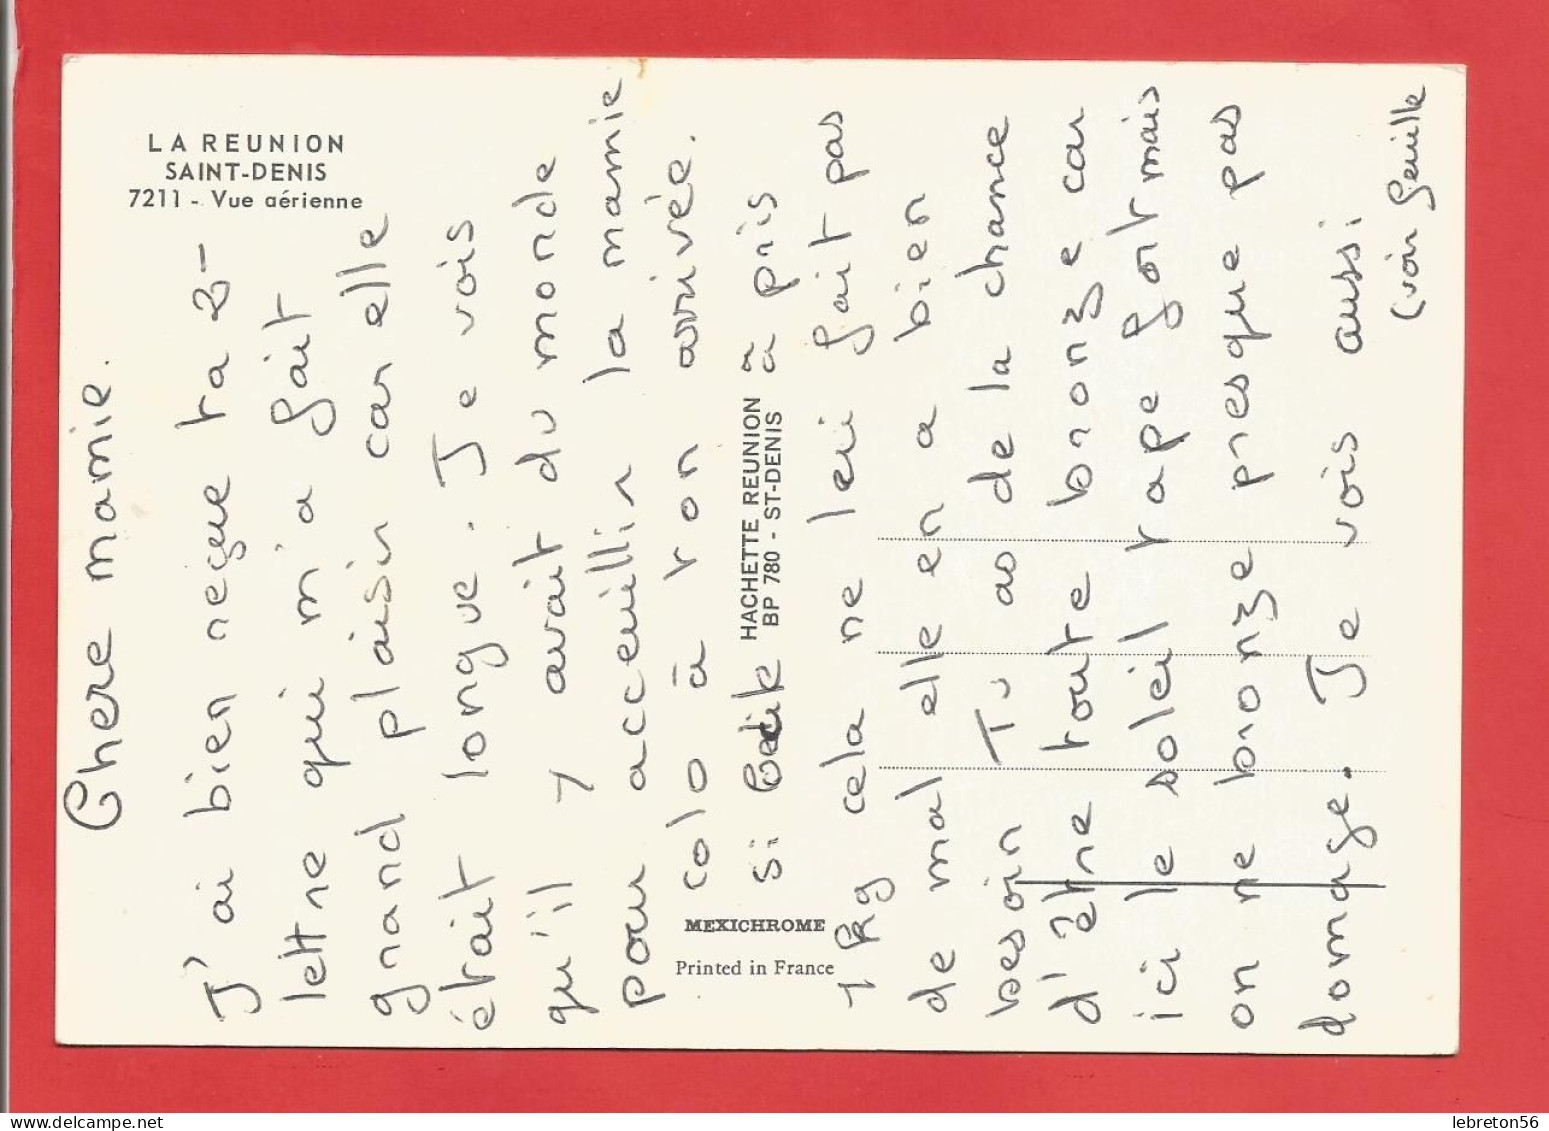 LA REUNION
SAINT-DENIS
7211 - Vue aérienne
Chere mamie.
J'ai bien reçue ta
lettre qui m'a fait
grand plaisir car elle
était longue. Je vois
qu'il y avait du monde
pour acceuillir la mamie
colo à ton arrivée.
si à pris
1 Kg cela ne lui fait pas
de mal elle en a bien
besoin Tu as de la chance
d'être toute bronze car
ici le soleil tape fort mais
on ne bronze presque pas
domage. Je vois aussi
(voir feuille
HACHETTE REUNION
BP 780 - ST-DENIS
MEXICHROME
Printed in France
lebreton56